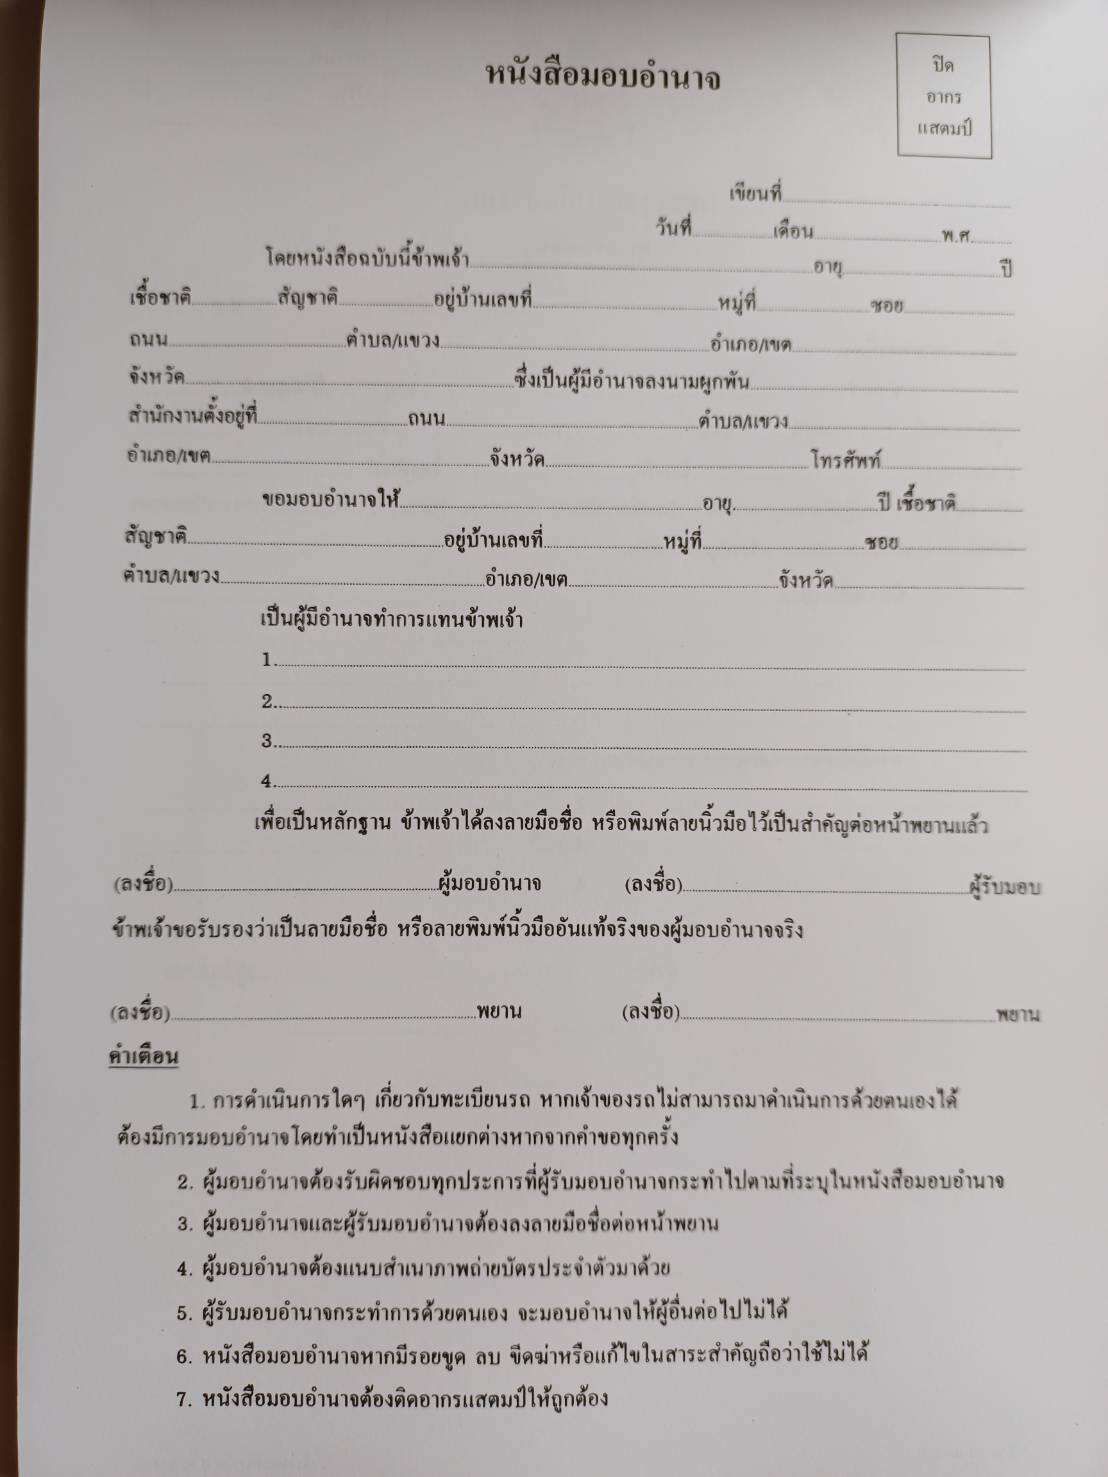 หนังสือมอบอำนาจ
ปิด
อากร
แสตมป์
เขียนที่
วันที่ เดือน พ.ศ.
โดยหนังสือฉบับนี้ข้าพเจ้า อายุ ปี
เชื้อชาติ สัญชาติ อยู่บ้านเลขที่ หมู่ที่ ซอย
ถนน ตำบล/แขวง อำเภอ/เขต
จังหวัด ซึ่งเป็นผู้มีอำนาจลงนามผูกพัน
สำนักงานตั้งอยู่ที่ ถนน ตำบล/แขวง
อำเภอ/เขต จังหวัด โทรศัพท์
ขอมอบอำนาจให้ อายุ ปี เชื้อชาติ
สัญชาติ อยู่บ้านเลขที่ หมู่ที่ ซอย
ตำบล/แขวง อำเภอ/เขต จังหวัด
เป็นผู้มีอำนาจทำการแทนข้าพเจ้า
1.
2.
3.
4.
เพื่อเป็นหลักฐาน ข้าพเจ้าได้ลงลายมือชื่อ หรือพิมพ์ลายนิ้วมือไว้เป็นสำคัญต่อหน้าพยานแล้ว
(ลงชื่อ) ผู้มอบอำนาจ (ลงชื่อ) ผู้รับมอบ
ข้าพเจ้าขอรับรองว่าเป็นลายมือชื่อ หรือลายพิมพ์นิ้วมืออันแท้จริงของผู้มอบอำนาจจริง
(ลงชื่อ) พยาน (ลงชื่อ) พยาน
คำเตือน
1. การดำเนินการใดๆ เกี่ยวกับทะเบียนรถ หากเจ้าของรถไม่สามารถมาดำเนินการด้วยตนเองได้
ต้องมีการมอบอำนาจโดยทำเป็นหนังสือแยกต่างหากจากคำขอทุกครั้ง
2. ผู้มอบอำนาจต้องรับผิดชอบทุกประการที่ผู้รับมอบอำนาจกระทำไปตามที่ระบุในหนังสือมอบอำนาจ
3. ผู้มอบอำนาจและผู้รับมอบอำนาจต้องลงลายมือชื่อต่อหน้าพยาน
4. ผู้มอบอำนาจต้องแนบสำเนาภาพถ่ายบัตรประจำตัวมาด้วย
5. ผู้รับมอบอำนาจกระทำการด้วยตนเอง จะมอบอำนาจให้ผู้อื่นต่อไปไม่ได้
6. หนังสือมอบอำนาจหากมีรอยขูด ลบ ขีดฆ่าหรือแก้ไขในสาระสำคัญถือว่าใช้ไม่ได้
7. หนังสือมอบอำนาจต้องติดอากรแสตมป์ให้ถูกต้อง